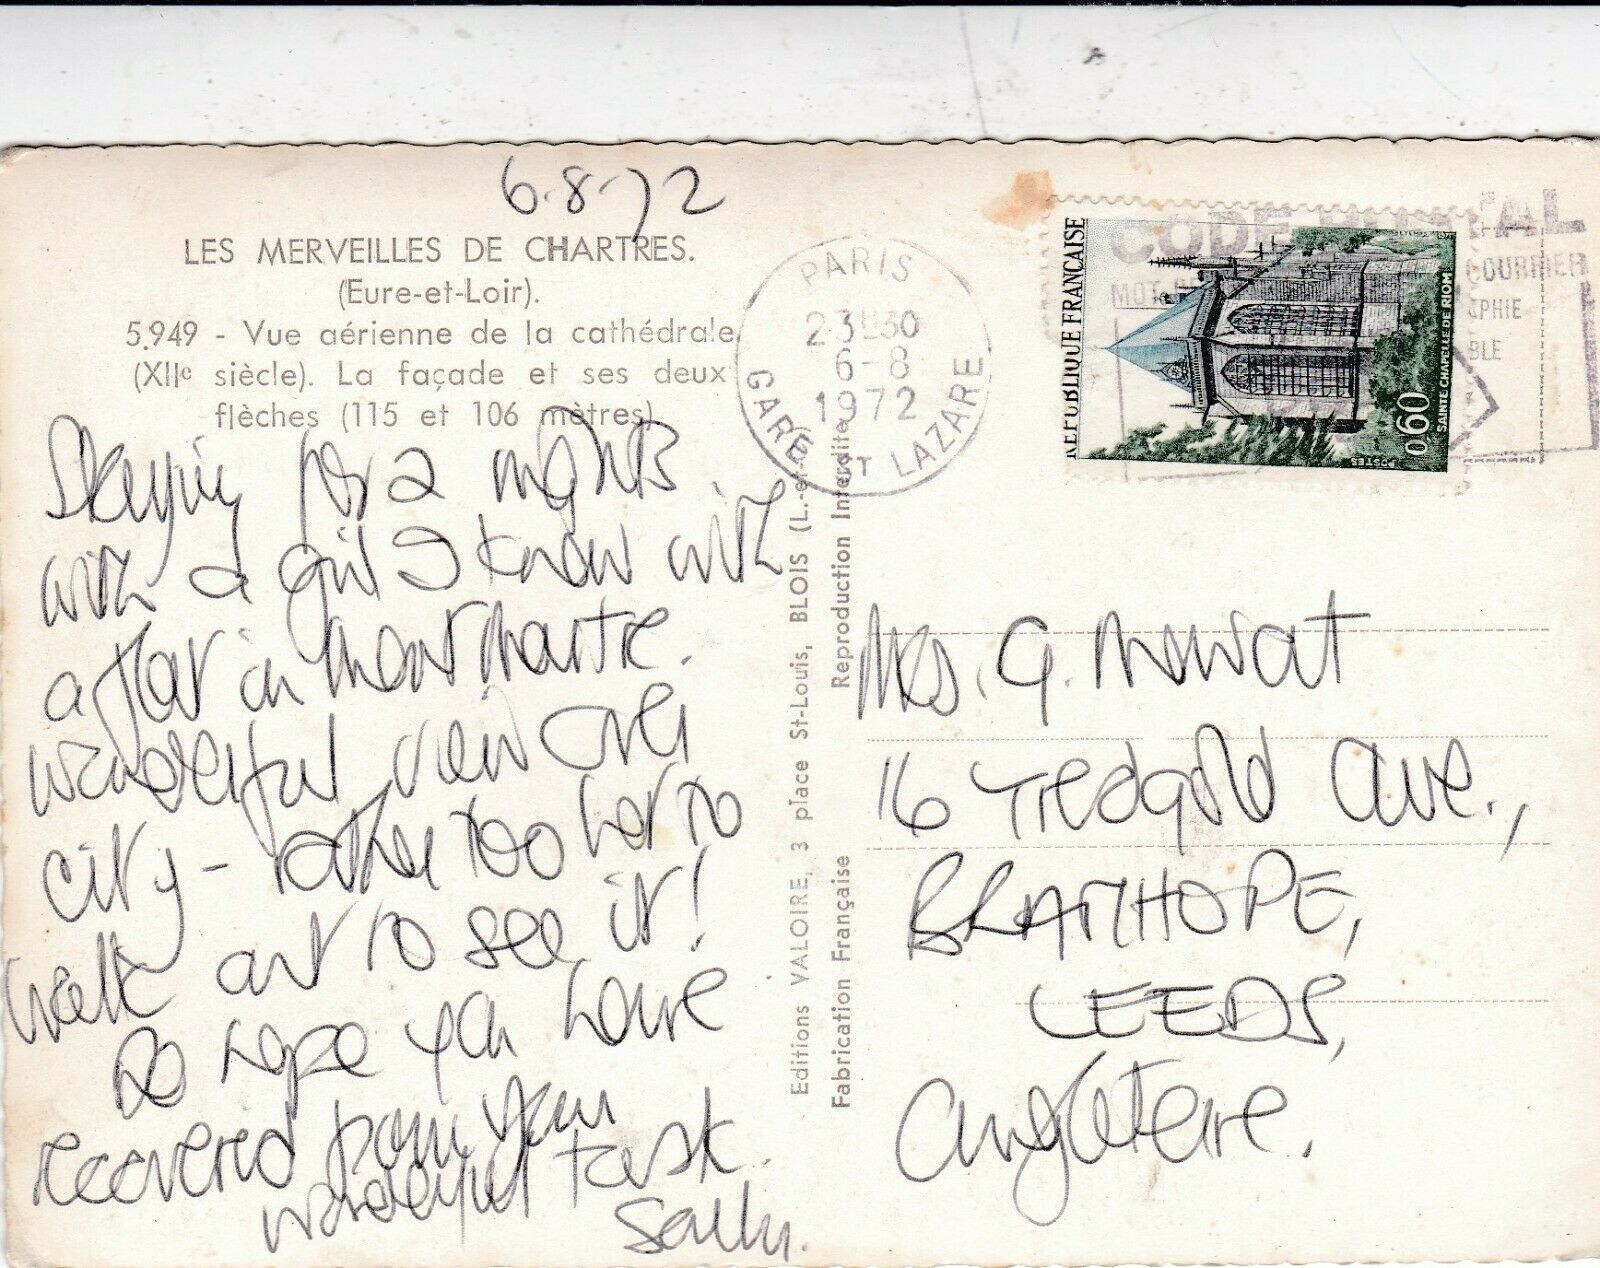 6.8.72
LES MERVEILLES DE CHARTRES.
(Eure-et-Loir).
5.949 - Vue aérienne de la cathédrale
(XIIe siècle). La façade et ses deux
flèches (115 et 106 mètres)
Staying for 2 nights
with a girl I know with
a flat in Montmartre.
wonderful view over
city - rather too hot to
walk out to see it!
Do hope you have
recovered from your
wonderful task.
Sally.
Editions VALOIRE, 3 place St-Louis, BLOIS (L.-et-
Fabrication Française
Reproduction Interdite
PARIS
23H30
6-8
1972
GARE ST LAZARE
CODE POSTAL
MOT
COURRIER
PHIE
BLE
REPUBLIQUE FRANÇAISE
SAINTE CHAPELLE DE RIOM
0,60
POSTES
Mrs. G. Mowat
16 Tredgold Ave.,
BRAMHOPE,
LEEDS,
Angleterre.